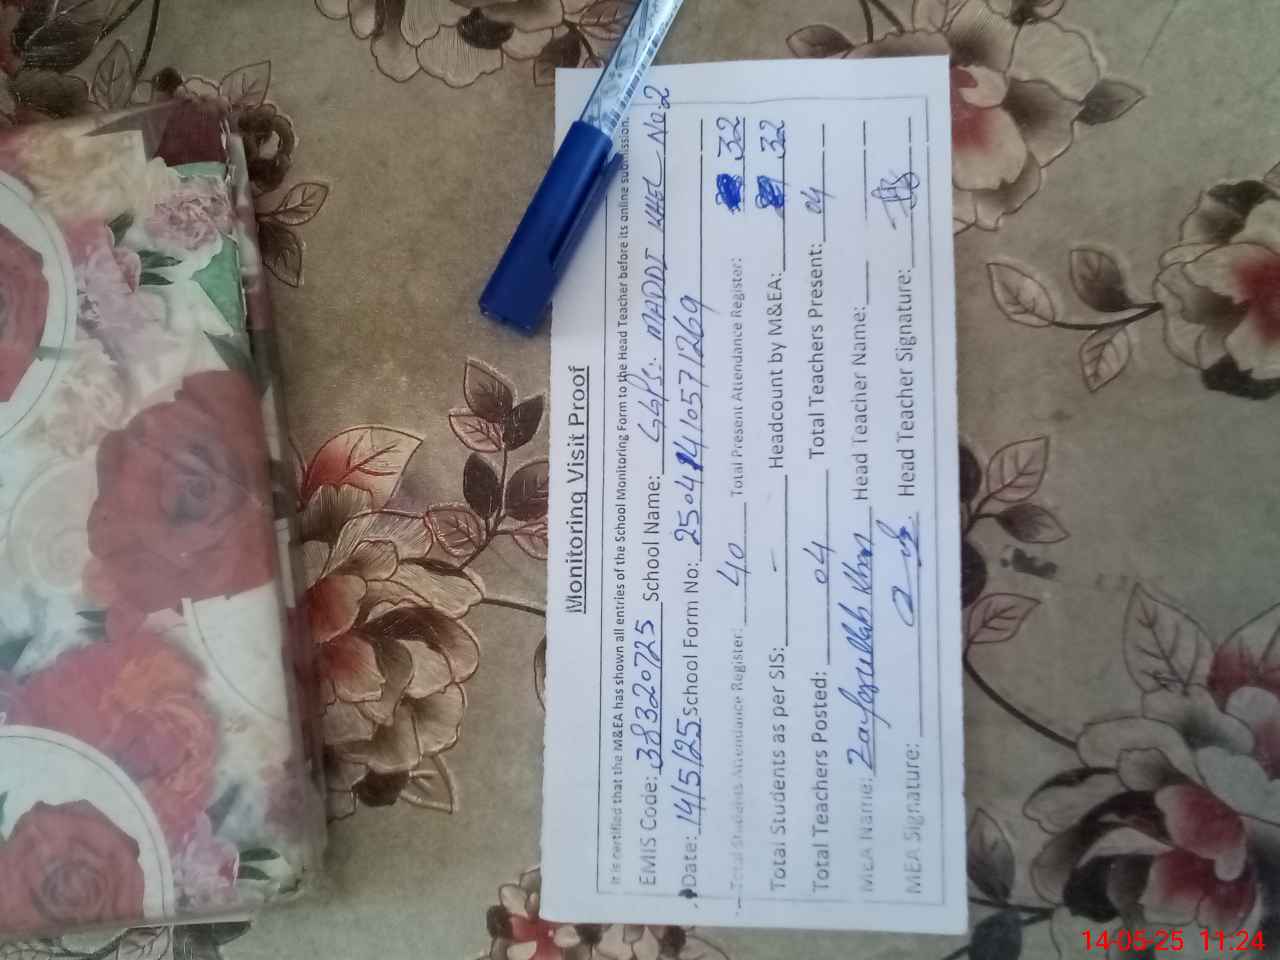 Monitoring Visit Proof
It is certified that the M&EA has shown all entries of the School Monitoring Form to the Head Teacher before its online submission.
EMIS Code: 38320725 School Name: GGPS: MADDI KHEL No:2
Date: 14/5/25 School Form No: 25041410571269
Total Students Attendance Register: 40 Total Present Attendance Register: 32
Total Students as per SIS: - Headcount by M&EA: 32
Total Teachers Posted: 04 Total Teachers Present: 04
MEA Name: Zafarullah Khan Head Teacher Name:
MEA Signature: Head Teacher Signature:
14-05-25 11:24